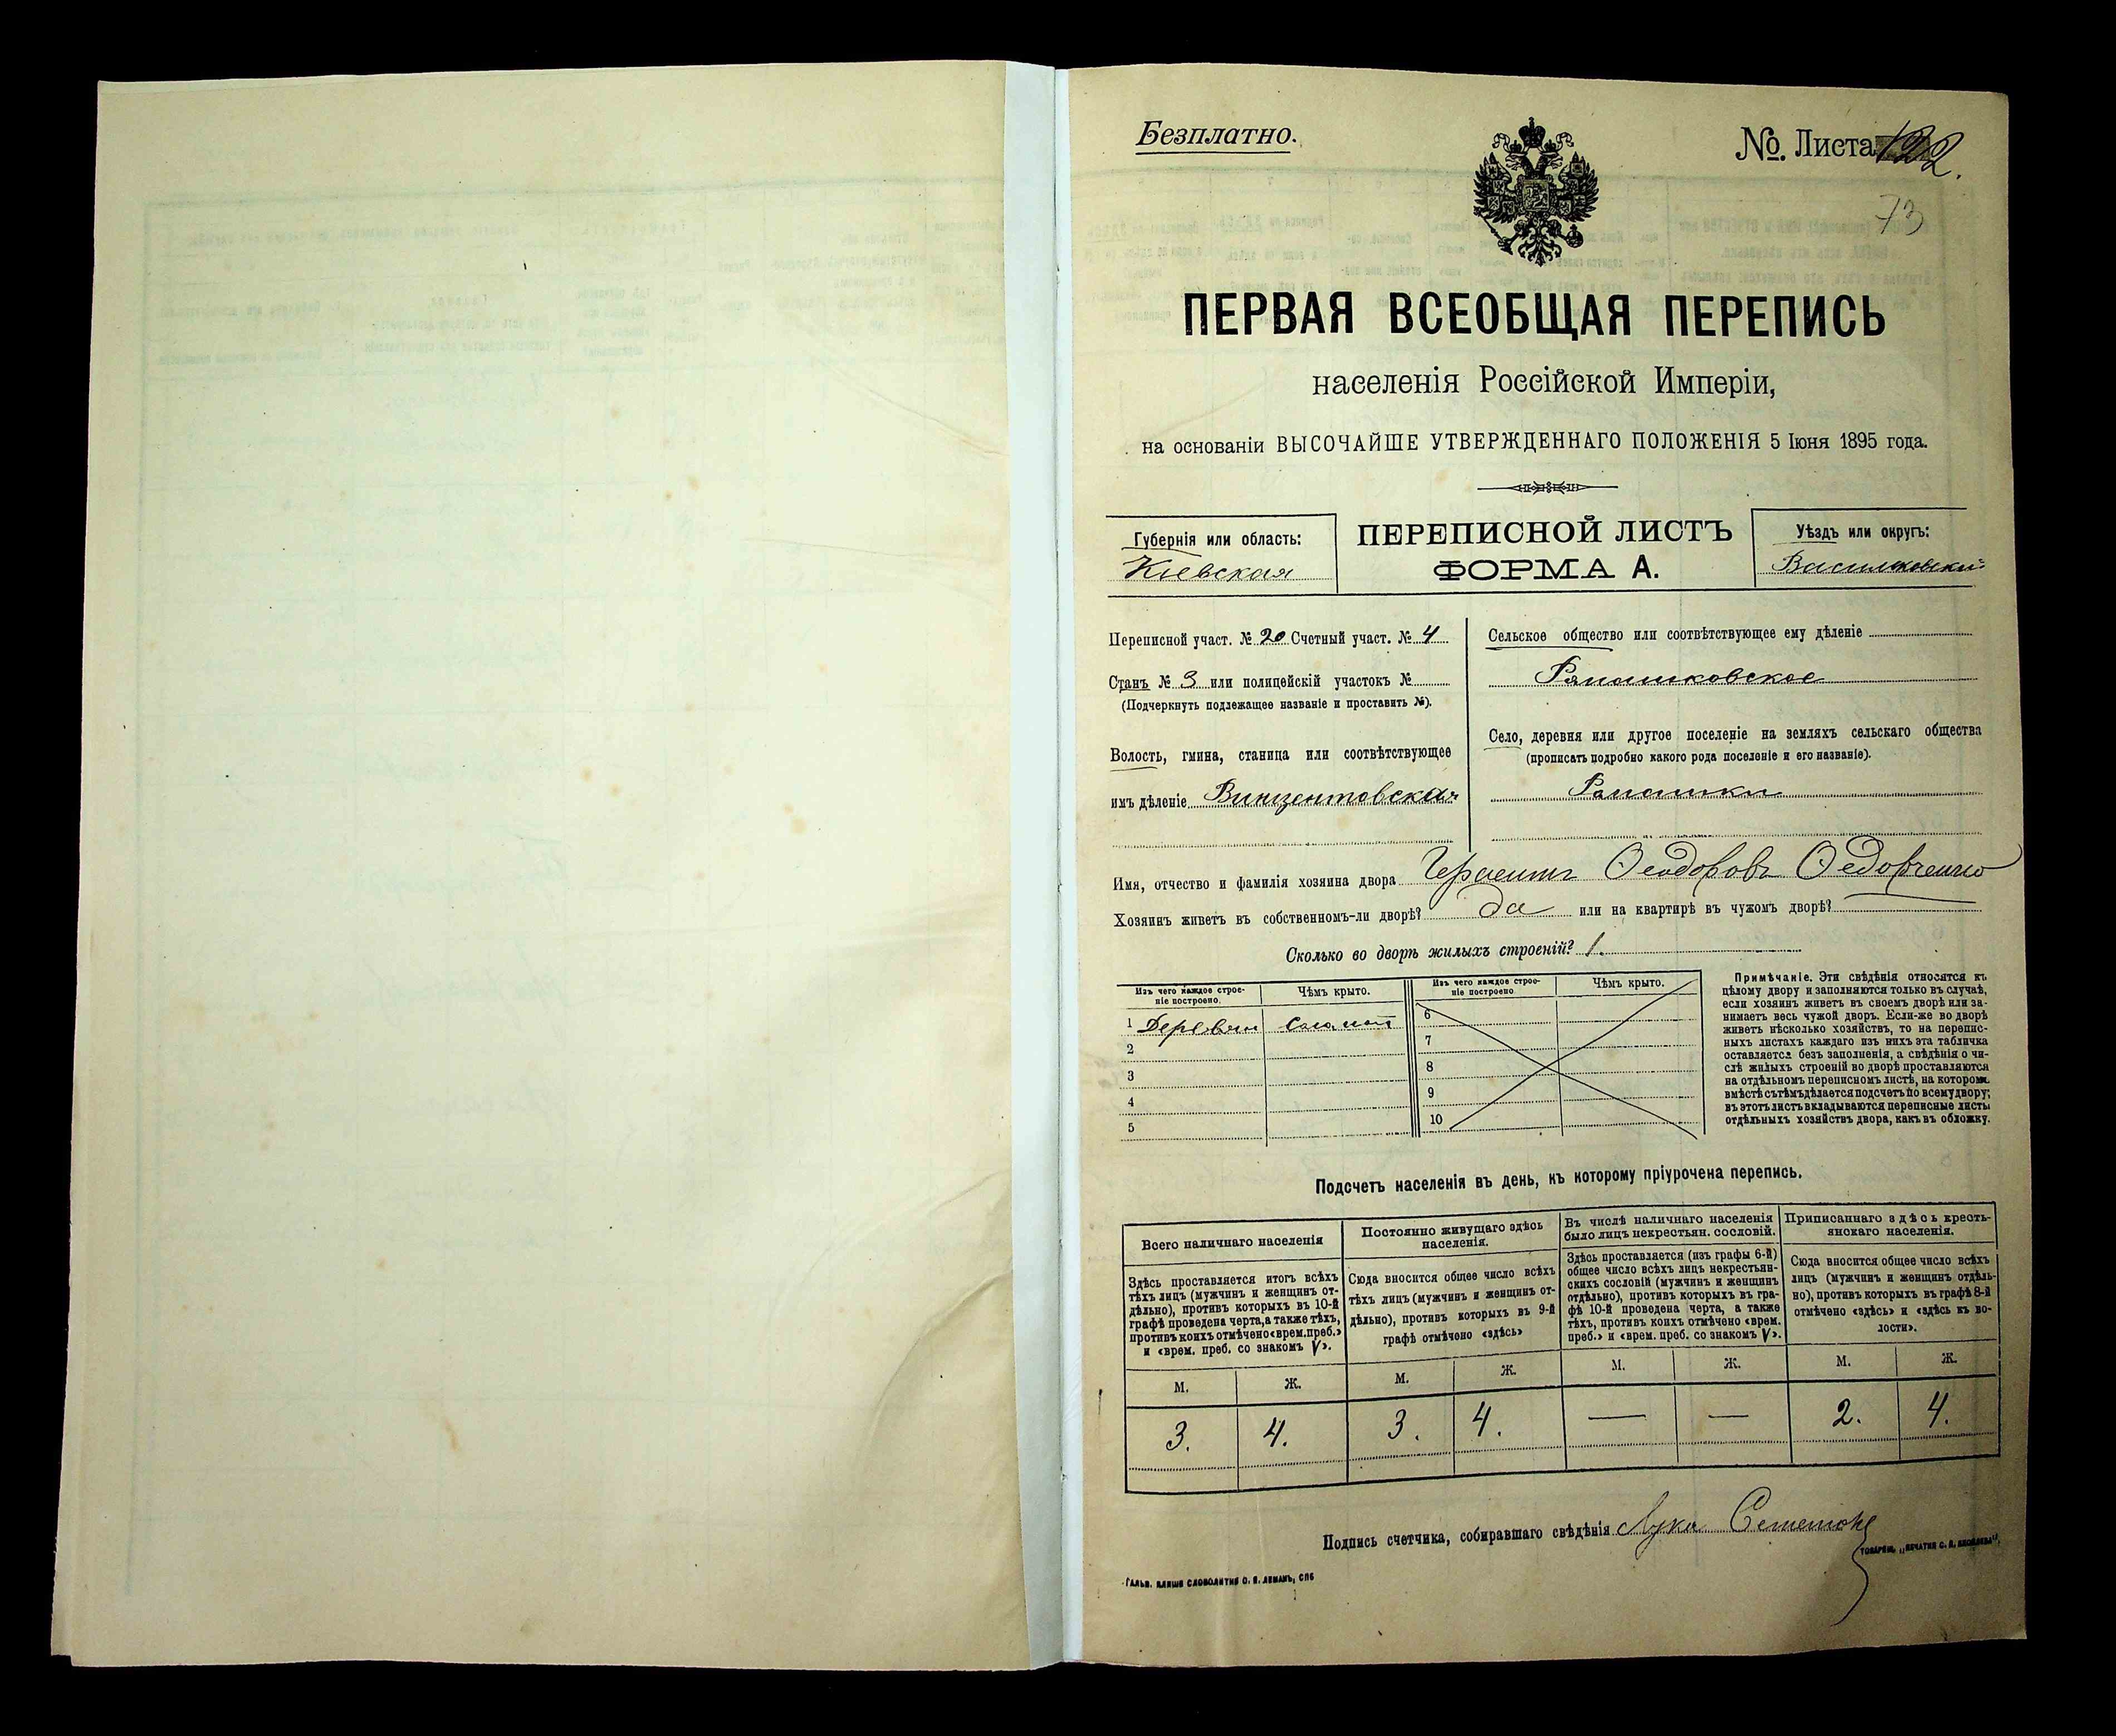 Безплатно.
№. Листа 122.
73
ПЕРВАЯ ВСЕОБЩАЯ ПЕРЕПИСЬ
населенія Россійской Имперіи,
на основаніи ВЫСОЧАЙШЕ УТВЕРЖДЕННАГО ПОЛОЖЕНІЯ 5 Іюня 1895 года.
Губернія или область:
Кіевская
ПЕРЕПИСНОЙ ЛИСТЪ
ФОРМА А.
Уѣздъ или округъ:
Васильковскій
Переписной участ. № 20 Счетный участ. № 4
Станъ № 3 или полицейскій участокъ №
(Подчеркнуть подлежащее названіе и проставить №).
Волость, гмина, станица или соотвѣтствующее
имъ дѣленіе Винцентовская
Сельское общество или соотвѣтствующее ему дѣленіе
Ромашковское
Село, деревня или другое поселеніе на земляхъ сельскаго общества
(прописать подробно какого рода поселеніе и его названіе).
Ромашки
Имя, отчество и фамилія хозяина двора Герасимъ Ѳеодоровъ Ѳедорченко
Хозяинъ живетъ въ собственномъ-ли дворѣ? да или на квартирѣ въ чужомъ дворѣ?
Сколько во дворѣ жилыхъ строеній? 1.
Изъ чего каждое строе-
ніе построено.
Чѣмъ крыто.
Изъ чего каждое строе-
ніе построено.
Чѣмъ крыто.
1 Деревян Солом
6
2
7
3
8
4
9
5
10
Примѣчаніе. Эти свѣдѣнія относятся къ
цѣлому двору и заполняются только въ случаѣ,
если хозяинъ живетъ въ своемъ дворѣ или за-
нимаетъ весь чужой дворъ. Если-же во дворѣ
живетъ нѣсколько хозяйствъ, то на перепис-
ныхъ листахъ каждаго изъ нихъ эта табличка
оставляется безъ заполненія, а свѣдѣнія о чи-
слѣ жилыхъ строеній во дворѣ проставляются
на отдѣльномъ переписномъ листѣ, на которомъ
вмѣстѣ съ тѣмъ дѣлается подсчетъ по всему двору;
въ этотъ листъ вкладываются переписные листы
отдѣльныхъ хозяйствъ двора, какъ въ обложку.
Подсчетъ населенія въ день, къ которому пріурочена перепись.
Всего наличнаго населенія
Здѣсь проставляется итогъ всѣхъ
тѣхъ лицъ (мужчинъ и женщинъ от-
дѣльно), противъ которыхъ въ 10-й
графѣ проведена черта, а также тѣхъ,
противъ коихъ отмѣчено «врем. преб.»
и «врем. преб. со знакомъ V».
Постоянно живущаго здѣсь
населенія.
Сюда вносится общее число всѣхъ
тѣхъ лицъ (мужчинъ и женщинъ от-
дѣльно), противъ которыхъ въ 9-й
графѣ отмѣчено «здѣсь»
Въ числѣ наличнаго населенія
было лицъ некрестьян. сословій.
Здѣсь проставляется (изъ графы 6-й)
общее число всѣхъ лицъ некрестьян-
скихъ сословій (мужчинъ и женщинъ
отдѣльно), противъ которыхъ въ гра-
фѣ 10-й проведена черта, а также
тѣхъ, противъ коихъ отмѣчено «врем.
преб.» и «врем. преб. со знакомъ V».
Приписаннаго здѣсь кресть-
янскаго населенія.
Сюда вносится общее число всѣхъ
лицъ (мужчинъ и женщинъ отдѣль-
но), противъ которыхъ въ графѣ 8-й
отмѣчено «здѣсь» и «здѣсь къ во-
лости».
М. Ж. М. Ж. М. Ж. М. Ж.
3. 4. 3. 4. — — 2. 4.
Подпись счетчика, собиравшаго свѣдѣнія Лука
ГАЛЬВ. КЛИШЕ СЛОВОЛИТНИ О. И. ЛЕМАНЪ, СПБ
ТОВАРИЩ. „ПЕЧАТНЯ С. П. ЯКОВЛЕВА".